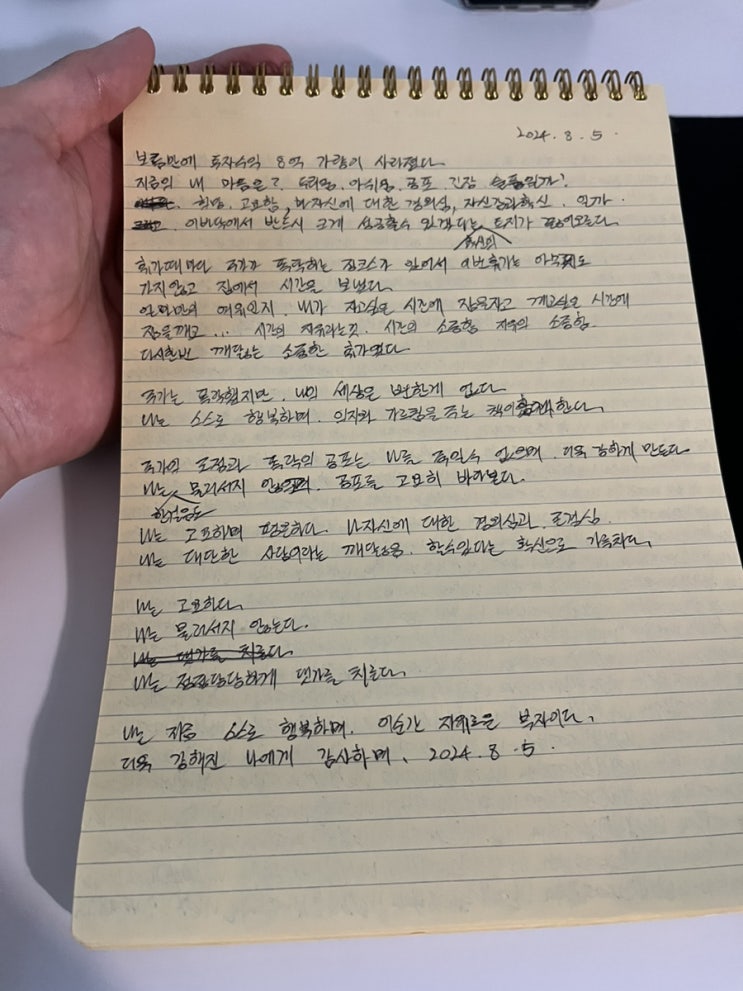 2024. 8. 5.
보름만에 투자수익 8억 가량이 사라졌다.
지금의 내 마음은? 두려움, 아쉬움, 공포, 긴장, 슬픔일까?
희망, 고요함, 나자신에 대한 경외심, 자신감과 확신 일까.
이바닥에서 반드시 크게 성공할수 있겠다는 확신의 토지가 피어오른다.
휴가때마다 주가가 폭락하는 징크스가 있어서 이번휴가는 아무데도
가지않고 집에서 시간을 보냈다.
얼마만의 여유인지. 내가 자고싶은 시간에 잠을자고 깨고싶은 시간에
잠을깨고... 시간의 자유라는것. 시간의 소중함 자유의 소중함.
다시한번 깨닫는 소중한 휴가였다.
주가는 폭락했지만, 나의 세상은 변한게 없다.
나는 스스로 행복하며, 의지와 가르침을 주는 책이 함께한다.
주가의 조정과 폭락의 공포는 나를 죽일수 없으며, 더욱 강하게 만든다.
나는 한걸음도 물러서지 않으며, 공포를 고요히 바라본다.
나는 고요하며 평온하다. 나자신에 대한 경외심과 존경심,
나는 대단한 사람이라는 깨달음, 할수있다는 확신으로 가득차다.
나는 고요하다.
나는 물러서지 않는다.
나는 댓가를 치른다.
나는 정정당당하게 댓가를 치른다.
나는 지금 스스로 행복하며, 이순간 자유로운 부자이다.
더욱 강해진 나에게 감사하며, 2024. 8. 5.